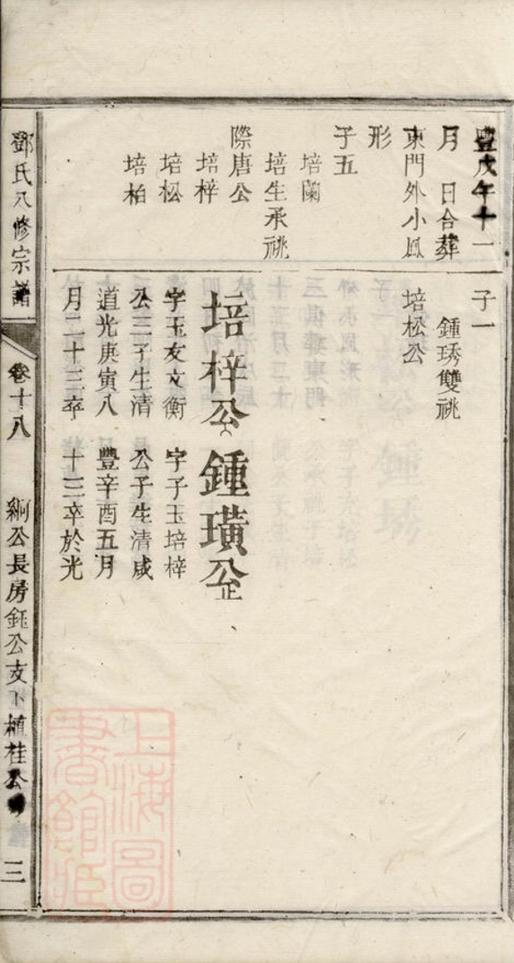 豊戊午十一
月　日合葬
東門外小鳳
形
子五
培蘭
培生承祧
際唐公
培梓
培松
培柏
子一
鍾琇雙祧
培松公
培梓公
字玉友文衡
公三子生清
道光庚寅八
月二十三卒
鍾璜公
字子玉培梓
公子生清咸
豐辛酉五月
十二卒於光
鄧氏八修宗譜
卷十八
絅公長房鈺公支下植桂公
三
上海圖書館藏